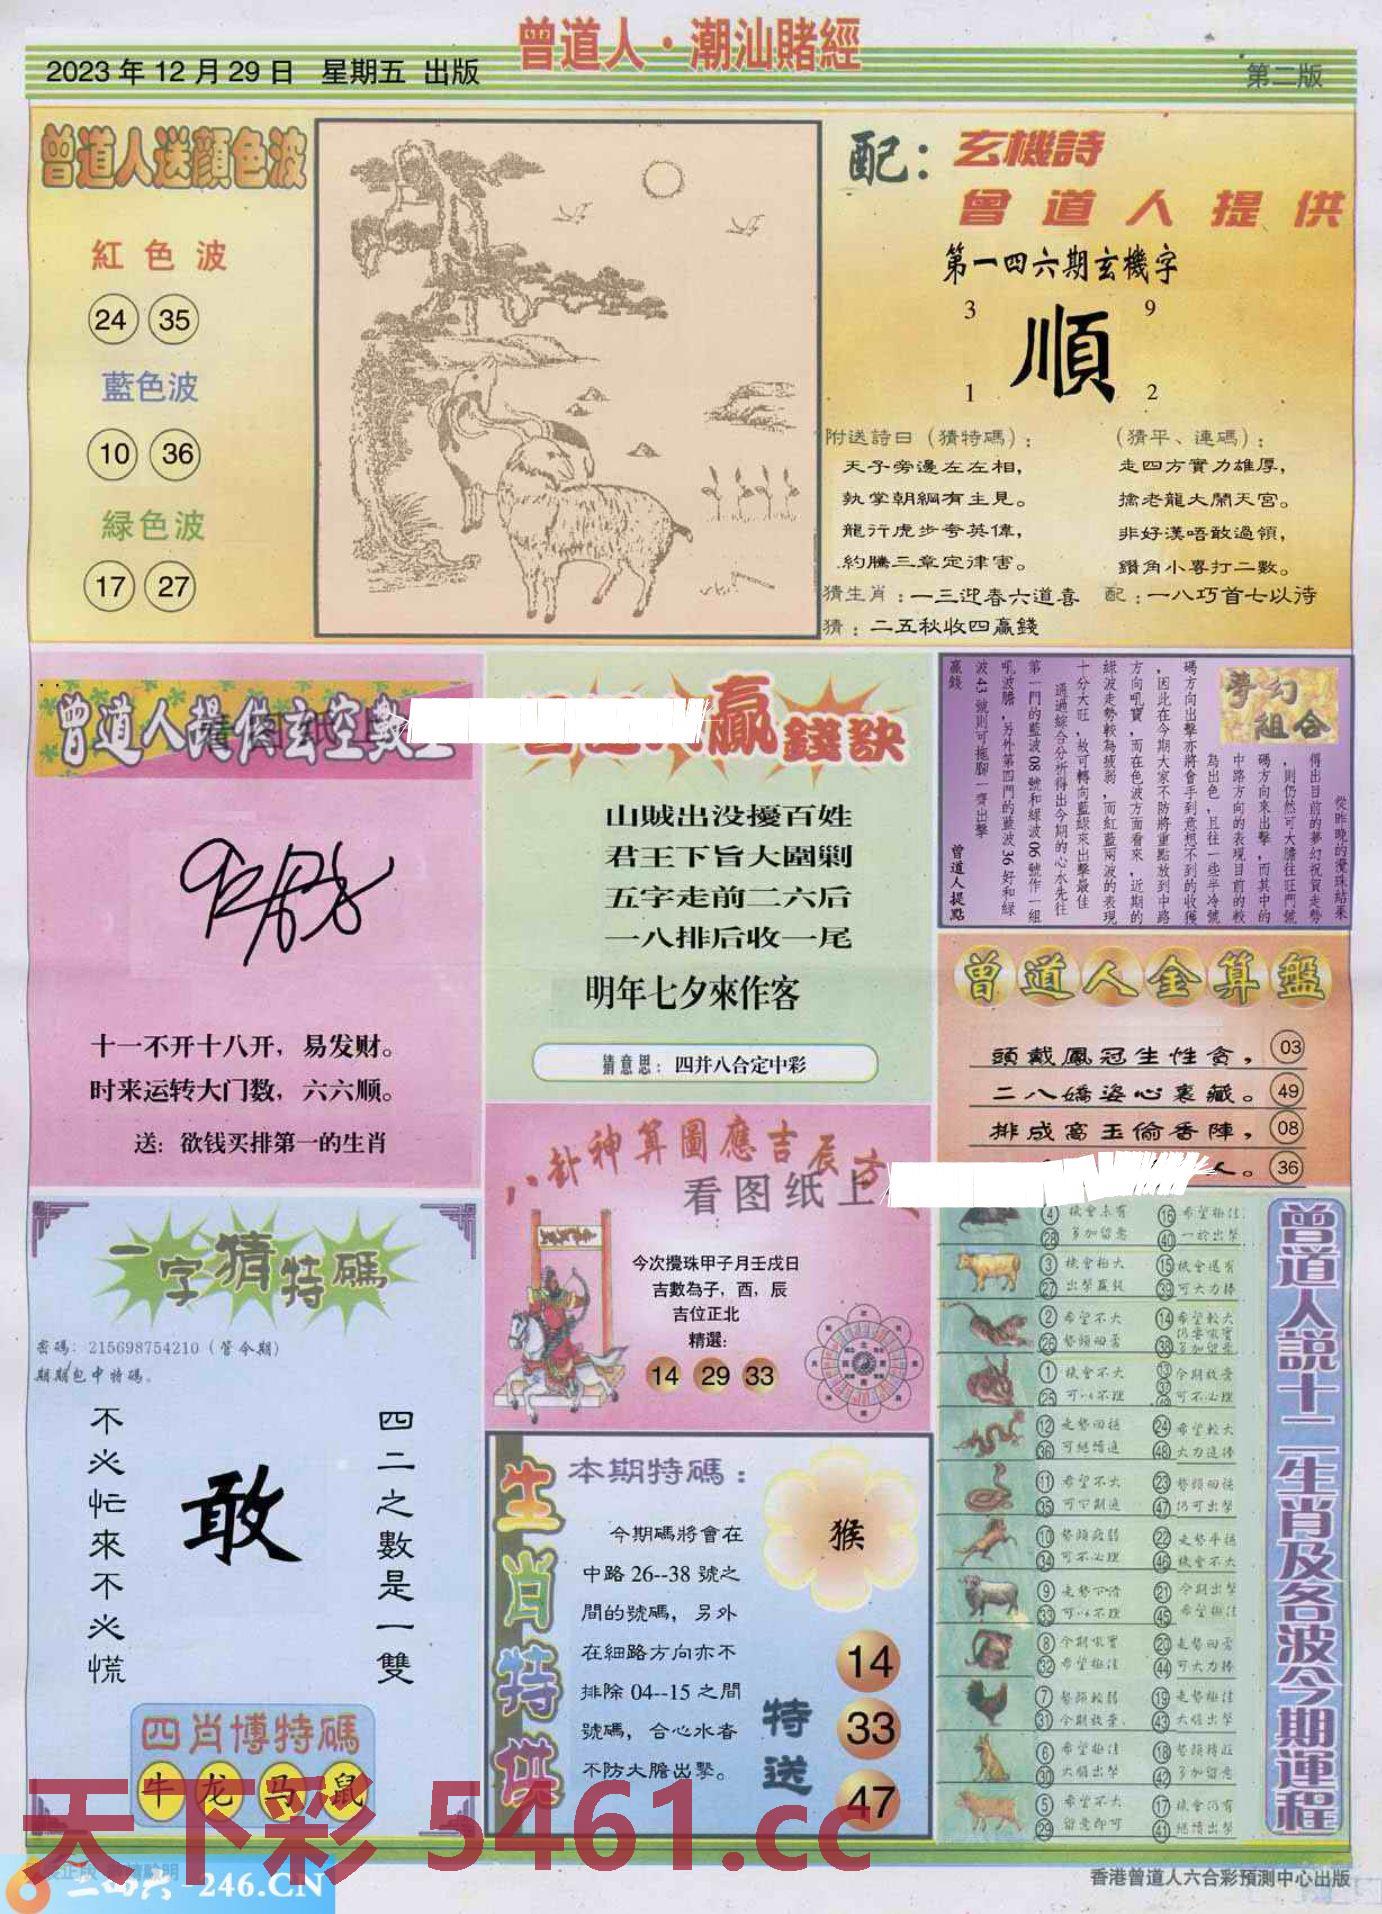 曾道人·潮汕賭經
2023年12月29日 星期五 出版
第二版
曾道人送顔色波
紅色波
24 35
藍色波
10 36
緑色波
17 27
配：玄機詩
曾道人提供
第一四六期玄機字
3 9
順
1 2
附送詩曰（猜特碼）：
天子旁邊左左相，
執掌朝綱有主見。
龍行虎步夸英偉，
約騰三章定律害。
（猜平、連碼）：
走四方實力雄厚，
擒老龍大鬧天宮。
非好漢唔敢過領，
鑽角小專打二數。
猜生肖：一三迎春六道喜
配：一八巧首七以待
猜：二五秋收四贏錢
曾道人提供玄空數
十一不开十八开，易发财。
时来运转大门数，六六顺。
送：欲钱买排第一的生肖
贏錢訣
山賊出没擾百姓
君王下旨大圍剿
五字走前二六后
一八排后收一尾
明年七夕來作客
猜意思：四并八合定中彩
夢幻組合
從昨晚的攪珠結果
得出目前的夢幻祝賀走勢
，則仍然可大膽往旺門號
碼方向來出擊，而其中的
中路方向的表現目前的較
為出色，且往一些半冷號
碼方向出擊亦將會手到意想不到的收獲
，因此在今期大家不防將重點放到中路
方向吼寶，而在色波方面看來，近期的
綠波走勢較為疲弱，而紅藍兩波的表現
十分大旺，故可轉向藍綠來出擊最佳
通過綜合分析得出今期的心水先往
第一門的藍波08號和綠波06號作一組
吼波膽，另外第四門的藍波36好和綠
波43號則可拖腳一齊出擊
贏錢
曾道人提點
曾道人金算盤
頭戴鳳冠生性貪，03
二八嬌姿心裏藏。49
排成窩玉偷香陣，08
人。36
八卦神算圖應吉辰方
看图纸上
今次攪珠甲子月壬戌日
吉數為子，酉，辰
吉位正北
精選：
14 29 33
一字猜特碼
密碼：215698754210（管今期）
期期包中特碼。
四二之數是一雙
敢
不必忙來不必慌
四肖博特碼
牛 龙 马 鼠
生肖特供
本期特碼：
猴
今期碼將會在
中路26--38號之
間的號碼，另外
在細路方向亦不
排除04--15之間
號碼，合心水者
不防大膽出擊。
特送
14
33
47
曾道人説十二生肖及各波今期運程
④ 機會未有 ⑯ 希望極佳
㉘ 多加留意 ㊵ 一於出擊
③ 機會拍大 ⑮ 機會還有
㉗ 出擊贏錢 ㊴ 可大力捧
② 希望不大 ⑭ 希望較大
㉖ 勢頭回落 ㊳ 多加留意
① 機會不大 ⑬ 今期放棄
㉕ 可以不理 可不必理
⑫ 走勢回穩 ㉔ 希望較大
㊱ 可繼續追 ㊽ 大力追捧
⑪ 希望不大 ㉓ 勢頭回穩
㉟ 可下期追 ㊼ 仍可出擊
⑩ 勢頭疲弱 ㉒ 走勢平穩
㉞ 可不必理 ㊻ 機會不大
⑨ 走勢下滑 ㉑ 今期出擊
㉝ 可以不理 ㊺ 希望極佳
⑧ 今期吼寶 ⑳ 走勢回落
㉜ 希望極佳 ㊹ 可大力捧
⑦ 勢頭較弱 ⑲ 走勢極佳
㉛ 今期放棄 ㊸ 大膽出擊
⑥ 希望極佳 ⑱ 勢頭轉旺
㉚ 大膽出擊 ㊷ 多加留意
⑤ 希望不大 ⑰ 機會仍有
㉙ 留意即可 ㊶ 繼續出擊
天下彩 5461.cc
二四六-246.CN
香港曾道人六合彩預測中心出版